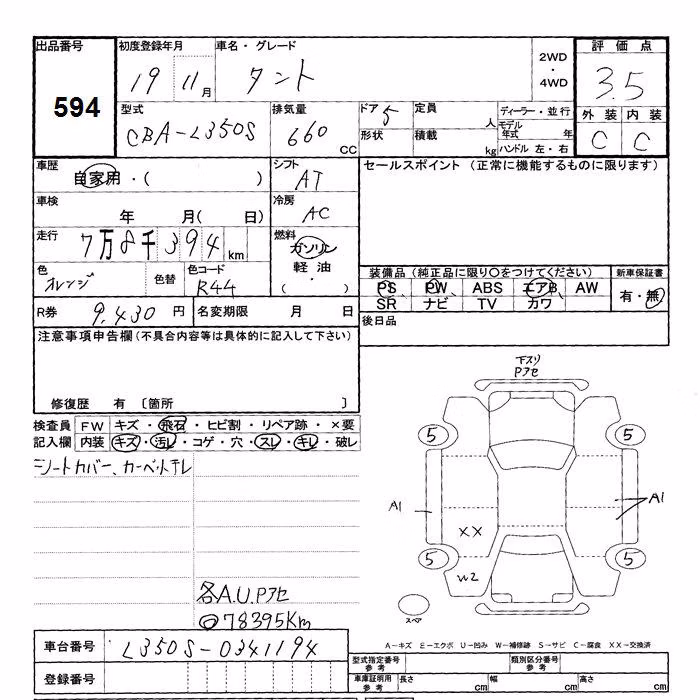 出品番号 初度登録年月 車名・グレード 2WD・4WD 評価点
594 19 11月 タント 3.5
型式 排気量 ドア 5 定員 人 ディーラー・並行 外装 内装
CBA-L350S 660 CC 形状 積載 kg モデル年式 年 ハンドル 左・右 C C
車歴 自家用・( ) シフト AT セールスポイント (正常に機能するものに限ります)
車検 年 月( 日) 冷房 AC
走行 7万8千394km 燃料 ガソリン・軽油・( )
色 オレンジ 色替 色コード R44
装備品 (純正品に限り○をつけてください) 新車保証書
PS PW ABS エアB AW 有・無
SR ナビ TV カワ
R券 9,430円 名変期限 月 日 後日品
注意事項申告欄(不具合内容等は具体的に記入して下さい)
修復歴 有 〔箇所 〕
検査員 FW キズ・飛石・ヒビ割・リペア跡・×要
記入欄 内装 キズ・汚レ・コゲ・穴・スレ・キレ・破レ
シートカバー、カーペットテレ
下スリ
Pアセ
5 5
A1 A1
XX
5 5
W2
スペア
各A.U.Pアセ
◎78395Km
車台番号 L350S-0341194
登録番号
A-キズ E-エクボ U-凹み W-補修跡 S-サビ C-腐食 XX-交換済
型式指定番号 参考 類別区分番号 参考
車庫証明用 参考 長さ cm 幅 cm 高さ cm